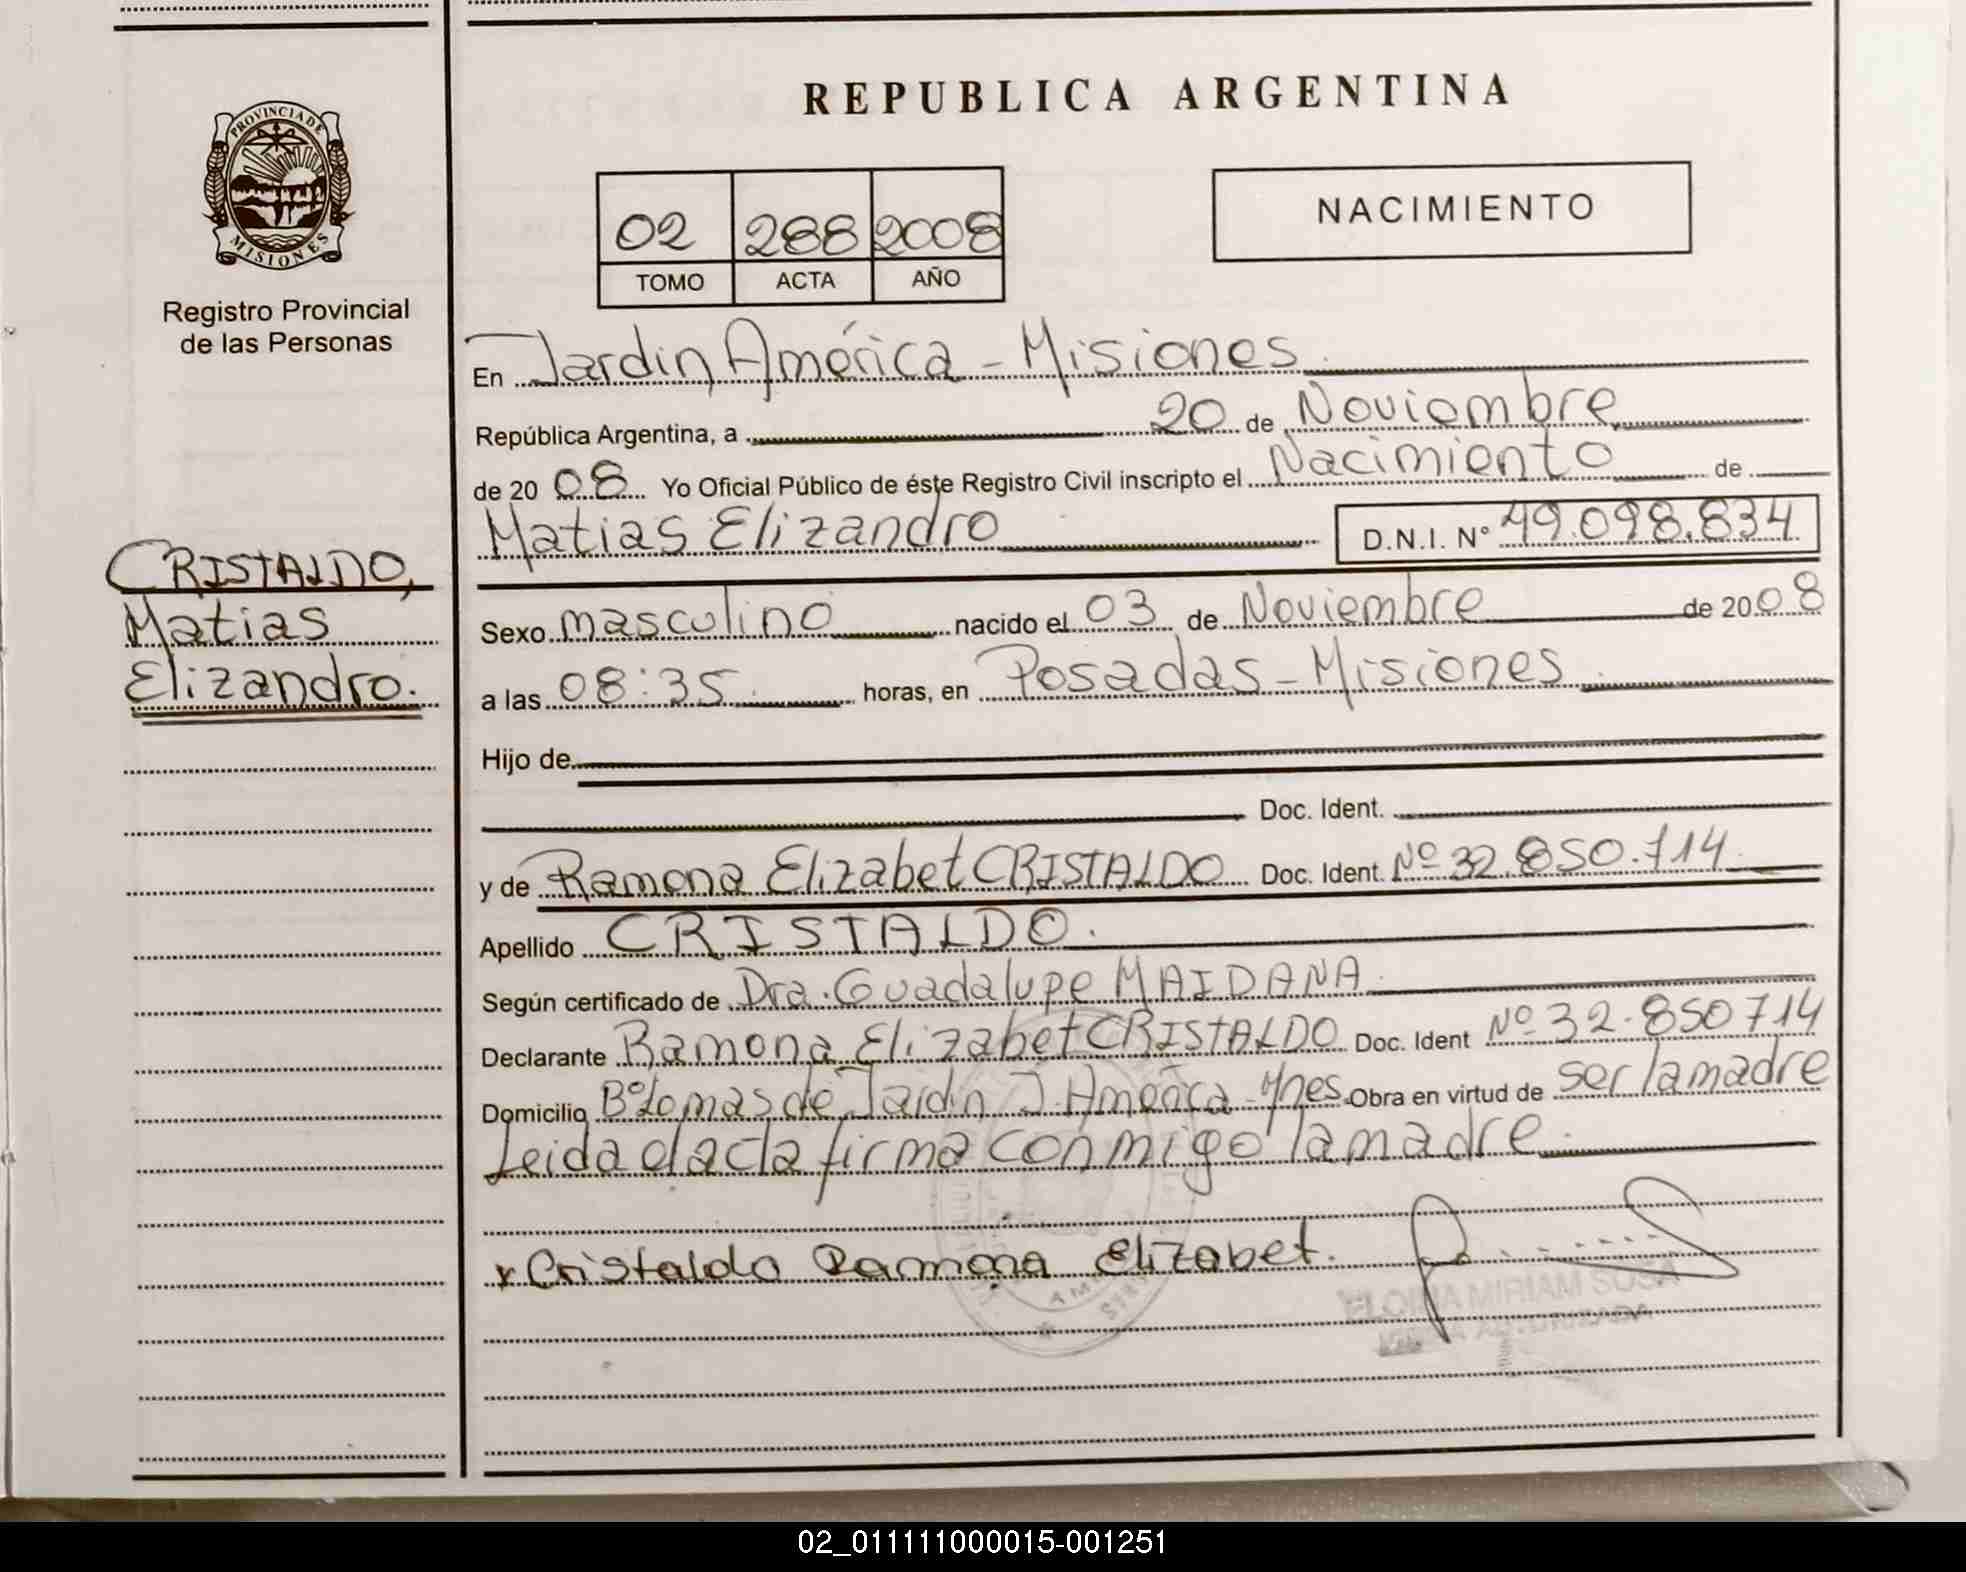 REPUBLICA ARGENTINA
PROVINCIA DE
MISIONES
Registro Provincial
de las Personas
02 288 2008
TOMO ACTA AÑO
NACIMIENTO
En Jardin, América - Misiones.
República Argentina, a 20 de Noviembre
de 20 08 Yo Oficial Público de éste Registro Civil inscripto el Nacimiento de
Matias Elizandro D.N.I. Nº 49.098.834
CRISTALDO,
Matias
Elizandro.
Sexo masculino nacido el 03 de Noviembre de 20 08
a las 08:35 horas, en Posadas - Misiones
Hijo de
Doc. Ident.
y de Ramona Elizabet CRISTALDO Doc. Ident. Nº 32.850.714
Apellido CRISTALDO.
Según certificado de Dra. Guadalupe MAIDANA
Declarante Ramona Elizabet CRISTALDO Doc. Ident Nº 32.850714
Domicilio Bº Lomas de Jardin J. América - Mnes. Obra en virtud de ser la madre
Leida el acta firma conmigo la madre.
x Cristaldo Ramona Elizabet.
MIRIAM SOSA
02_011111000015-001251